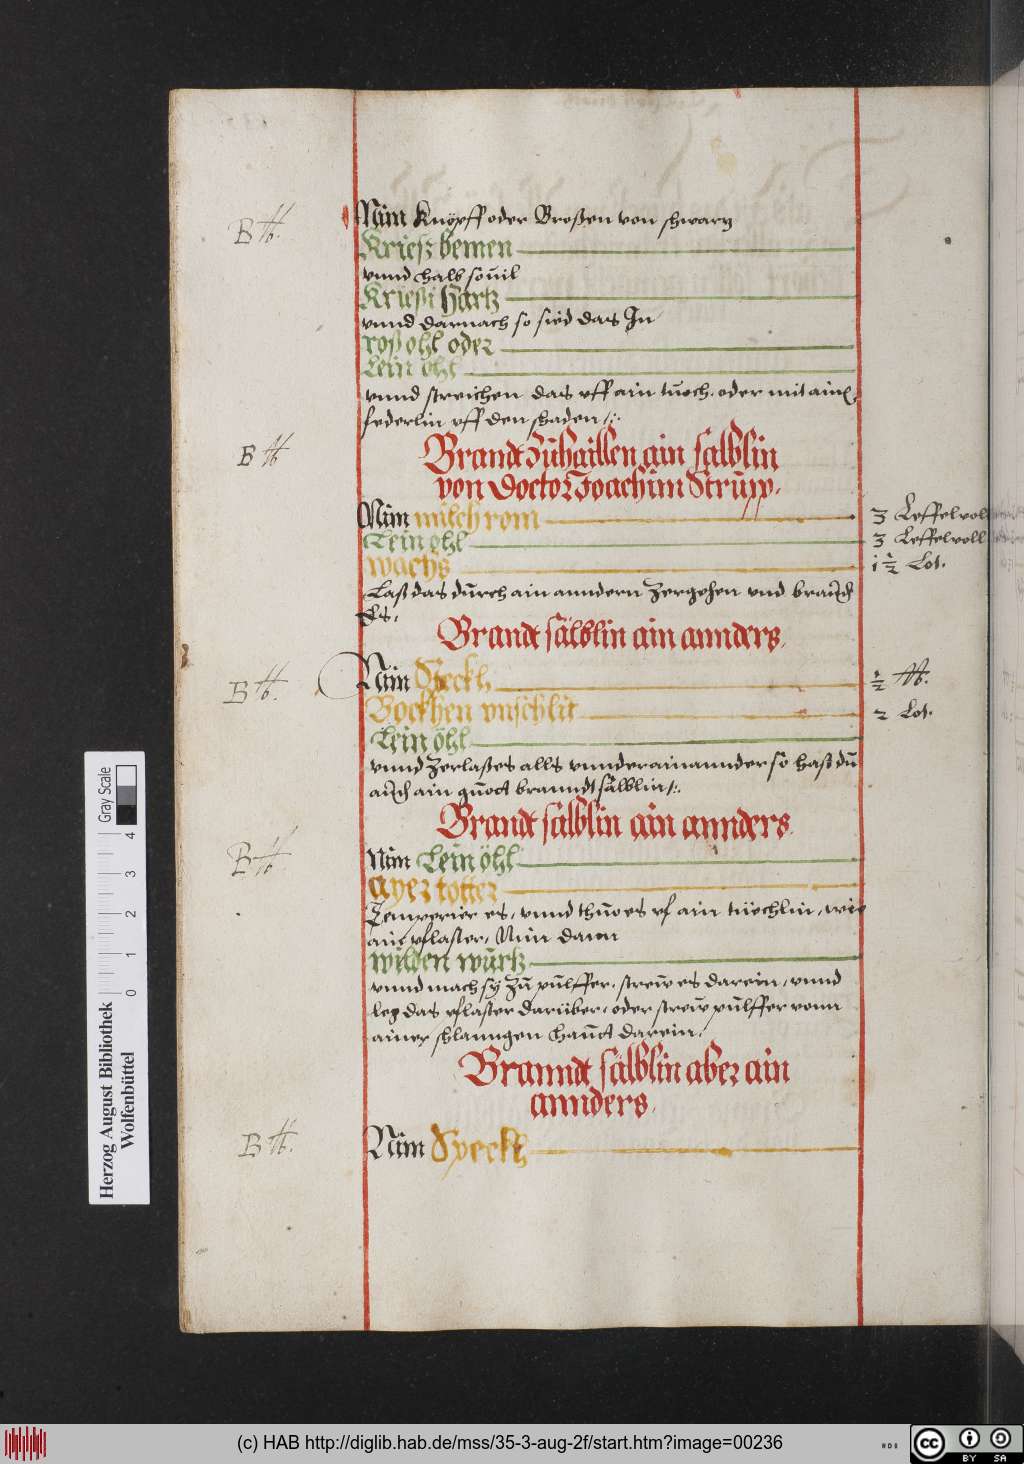 Nim Knöpff oder Broßen von shwartz
Krießbemen
vnnd halb souil
Krießi Hartz
vnnd darnach so sied das In
roß öhl oder
Lein öhl
vnnd streichen das vff ain tuoch, oder mit ainer
federlin vff den shaden /:.
B tb.
Brandt zuhaillen ain sälblin
von Doctor Joachim Strupp.
B tb
Nim milch rom 3 Leffel voll
Lein öhl 3 Leffel voll
wachs 1 1/2 Lot.
Laß das durch ain anndern zergehen vnd brauch
Es,
Brandt sälblin ain annders.
B tb.
Nim Speckh 1/2 tb.
Bockhen vnschlit 2 Lot.
Lein öhl
vnnd zerlaßes alls vnnderainannder so hast du
auch ain guoct branndt sälblin /:.
Brandt sälblin ain annders
B tb.
Nim Lein öhl
ayer totter
Temperier es, vnnd thuo es vf ain tüechlin, wie
ain pflaster, Nim dann
wilden wurtz
vnnd mach sy zu pulffer, streiw es darein, vnnd
leg das pflaster darüber, oder streiw pulffer vonn
ainer shlanngen haut darein,
Branndt sälblin aber ain
annders.
B tb.
Nim Speckh
Gray Scale
0 1 2 3 4
Herzog August Bibliothek
Wolfenbüttel
(c) HAB http://diglib.hab.de/mss/35-3-aug-2f/start.htm?image=00236
cc BY SA